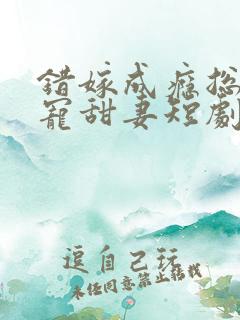 错嫁成瘾总
寵甜妻短劇
逗自己玩
未经同意禁止转载